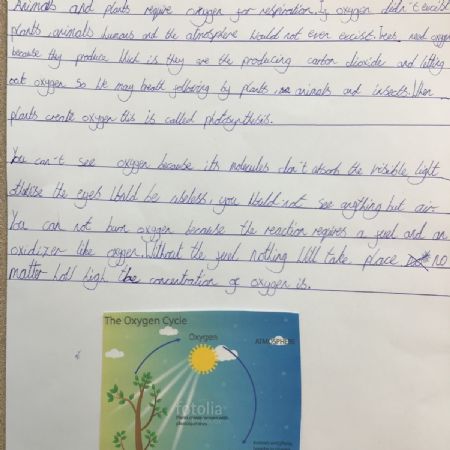 Animals and plants require oxygen for respiration. If oxygen didn't excist
plants, animals humans and the atmosphere would not even excist. Trees need oxygen
because they produce which is they are the producing carbon dioxide and
out oxygen so we may breath following by plants, animals and insects. When
plants create oxygen this is called photosynthesis.
You can't see oxygen because its molecules don't absorb the visible light
the eyes would be useless, you would not see anything but air.
You can not burn oxygen because the reaction requires a fuel and an
oxidizer like oxygen. Without the fuel nothing will take place no
matter how high the concentration of oxygen is.
The Oxygen Cycle
Oxygen
ATMOSPHERE
fotolia